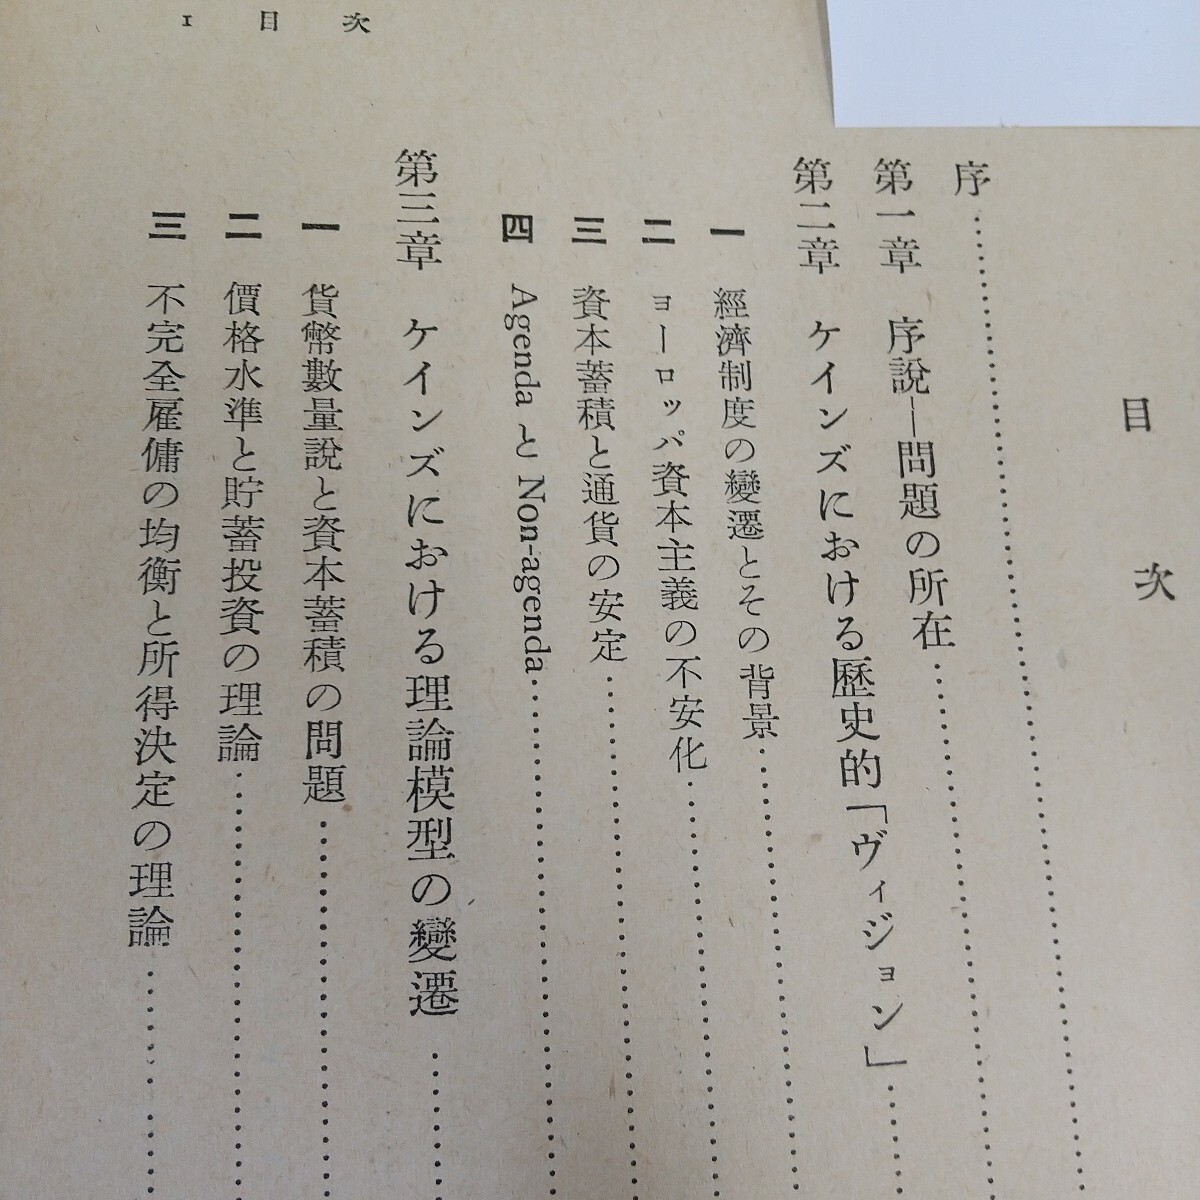 目次
序
第一章 序説―問題の所在
第二章 ケインズにおける歷史的「ヴィジョン」
一 經濟制度の變遷とその背景
二 ヨーロッパ資本主義の不安化
三 資本蓄積と通貨の安定
四 Agenda と Non-agenda
第三章 ケインズにおける理論模型の變遷
一 貨幣數量說と資本蓄積の問題
二 價格水準と貯蓄投資の理論
三 不完全雇傭の均衡と所得決定の理論
1 目次